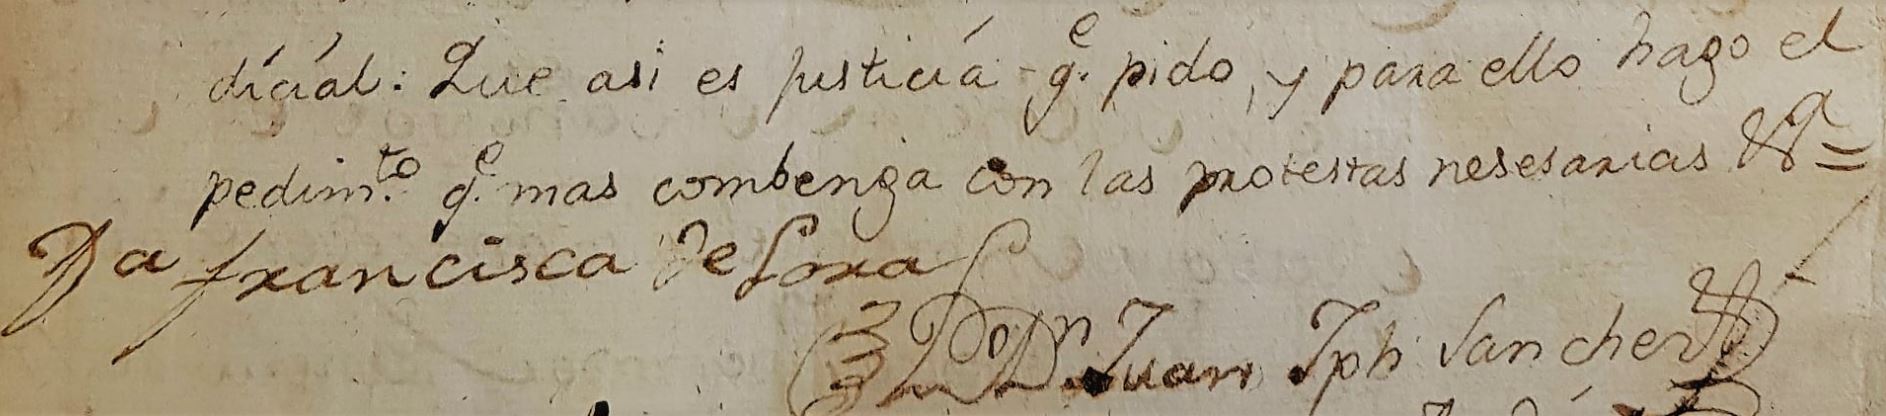 dicial: Que asi es justicia q.e pido, y para ello hago el
pedim.to q.e mas combenga con las protestas nesesarias &a =
Da francisca de Lora
Juan Jph Sanchez